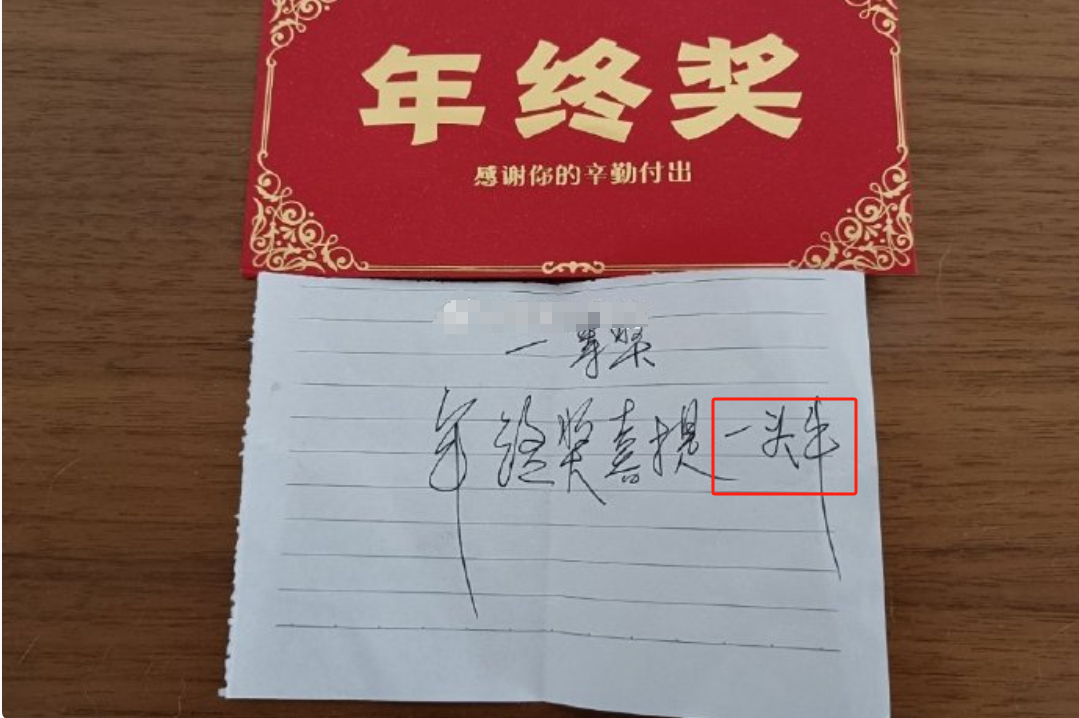 年终奖
感谢你的辛勤付出
一等奖
年终奖喜提一头牛